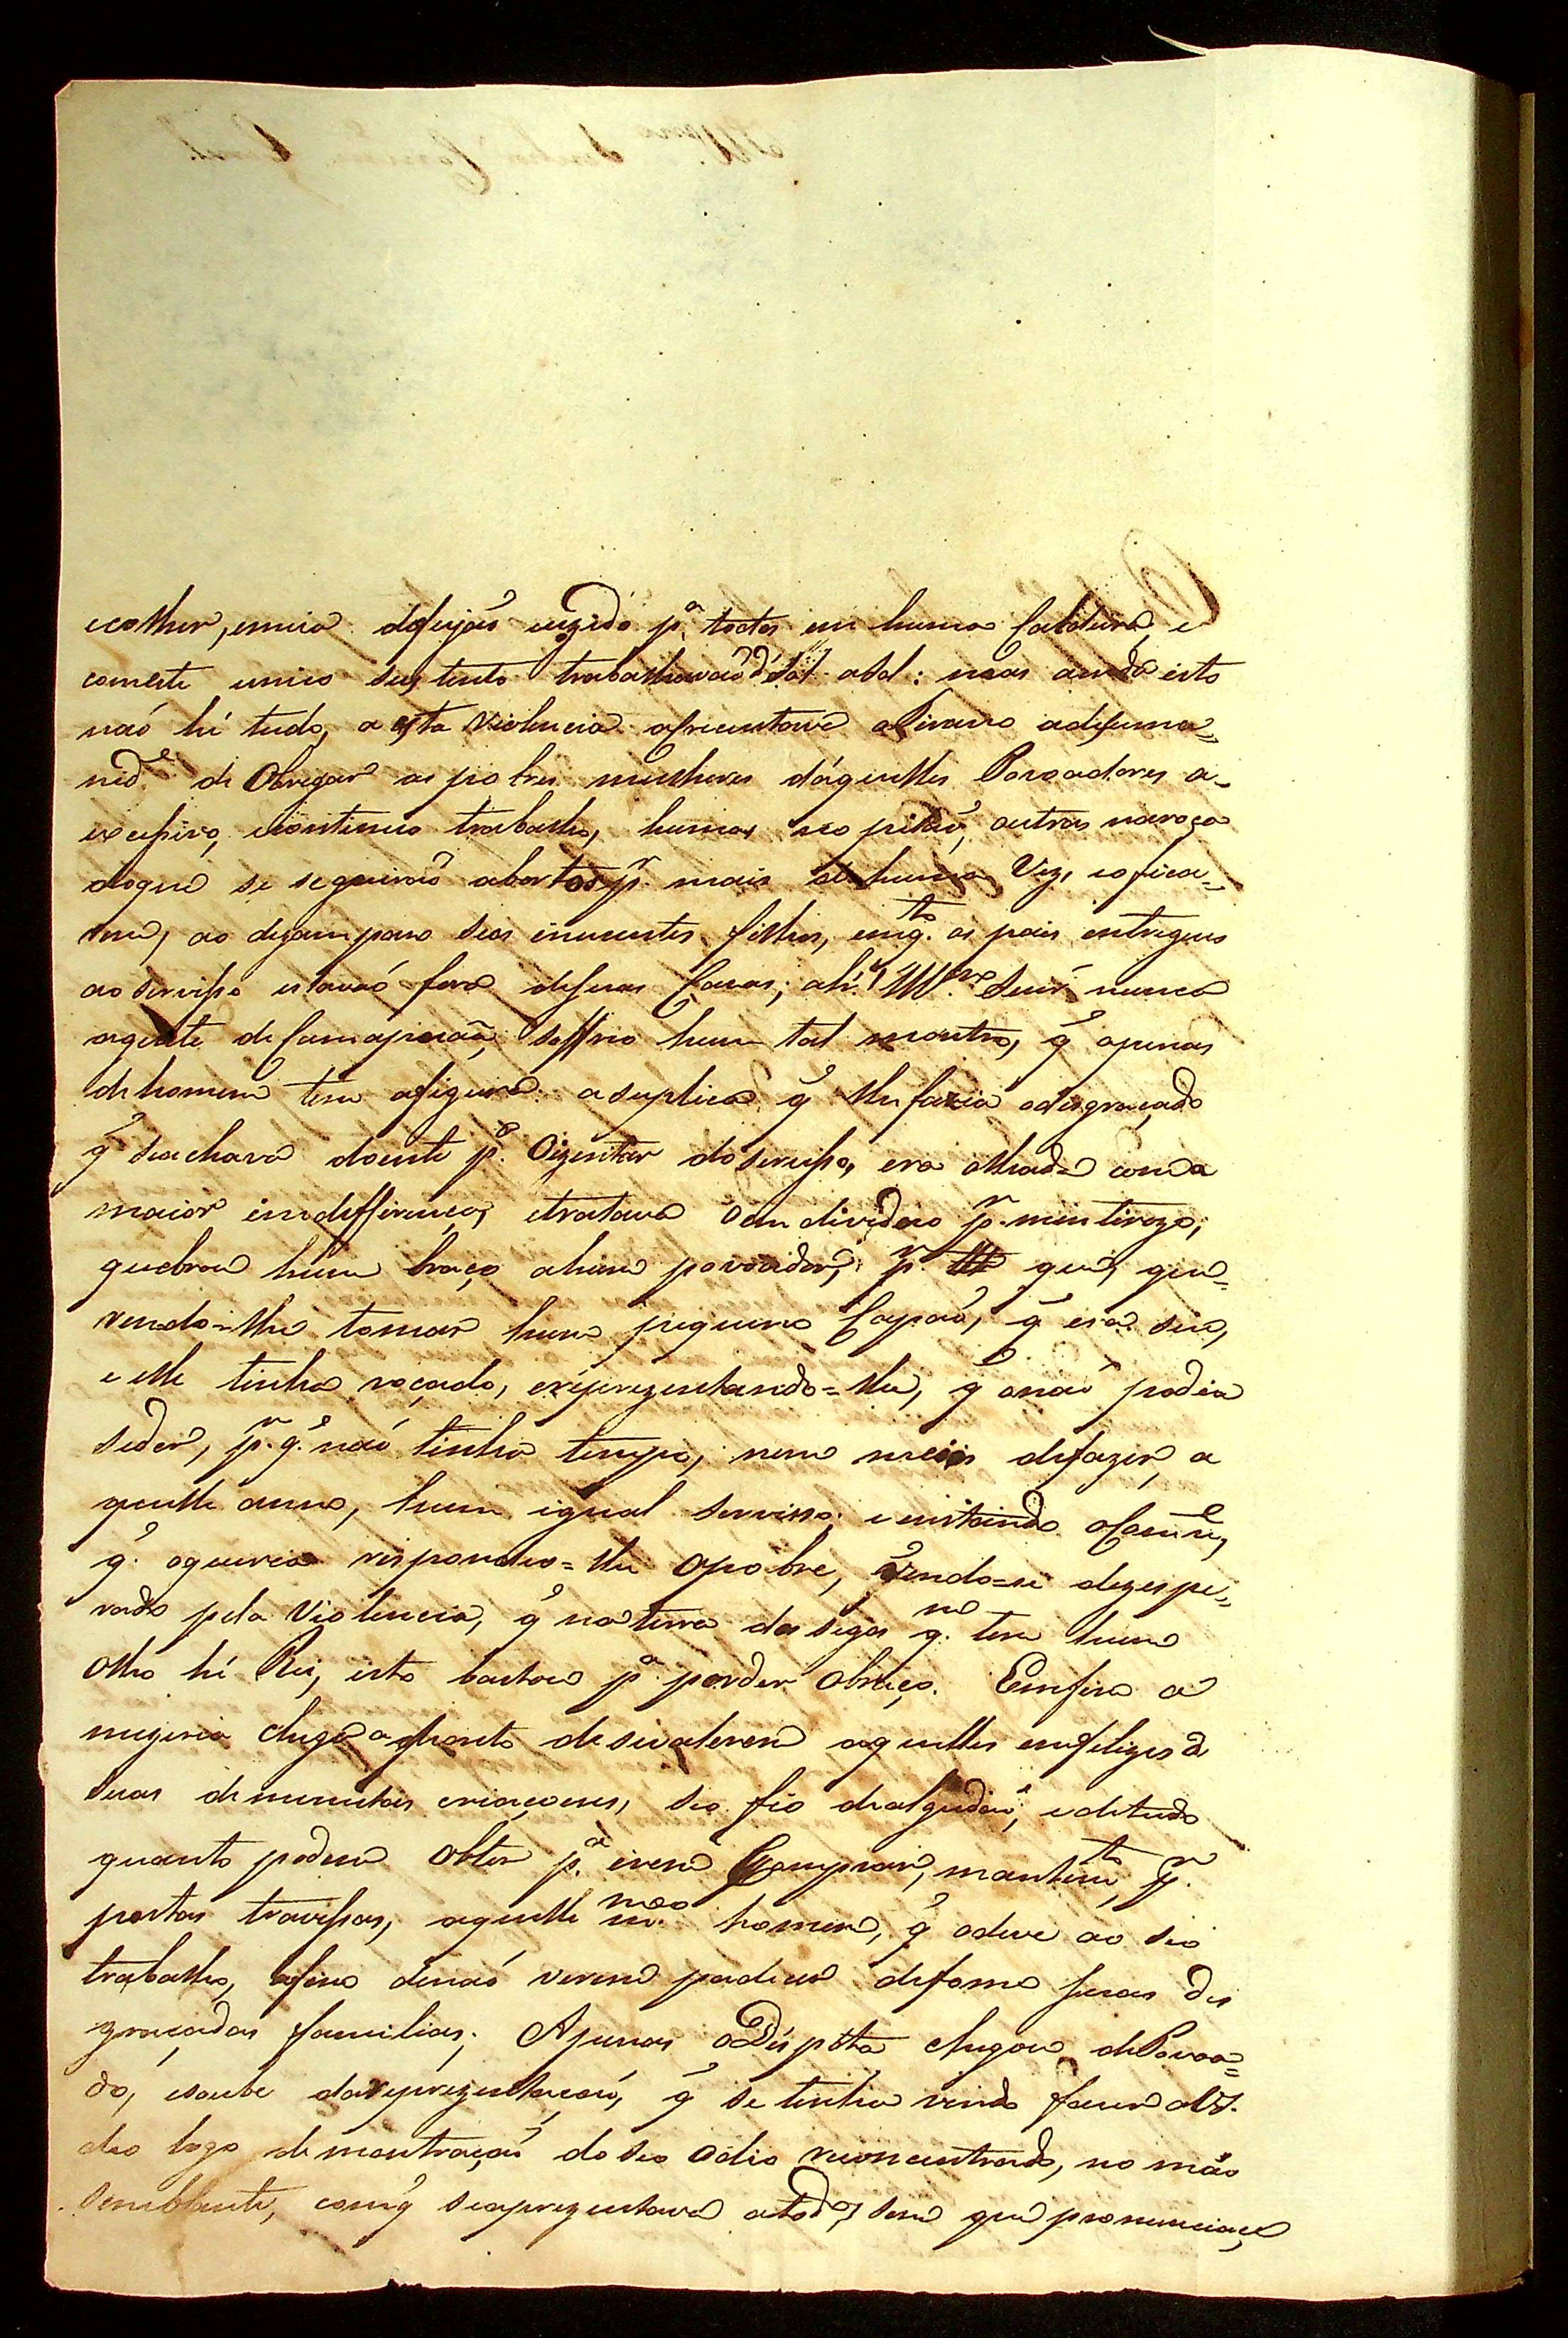 ecolher, emeio defeijaõ cuzido p.ª todos em huma Caldeira, e
comeste unico sustento trabalhavaõ de Sol aSol: mas ainda isto
naõ hé tudo, a esta Violencia acrecentava oTirano adesuma=
nid.e de Obregar as pobres mulheres dáquelles Povoadores a
excesivo, econtinuo trabalho, humas no pilaõ, outras naroça
doque se seguiraõ abortos p.r mais de huma Vez, eofica=
rem, ao dezamparo seos inucentes filhos, emq.to os pais entregues
ao serviso estavaõ fora desuas Cazas; ah! Ill.mo Senr. nunca
agente desamaparaõ, soffrio hum tal monstro, q̃ apenas
de homem tem afigura. asuplica q̃ lhe fazia odesgraçado
q̃ seachava doente p.ª Oizentar doserviso, era olhada coma
maior indifferença, etratava oem divideo p.r mentirozo;
quebrou hum braço ahum povoador, p.r que, que=
rendo-lhe tomar hum piqueno Capaõ, q̃ era seu,
e elle tinha roçado, erreprezentando=lhe, q̃ onaõ podia
seder, p.r q̃ naõ tinha tempo, nem meios defazer, a
quelle anno, hum igual servisso; e instando oComd.e,
q̃ oqueria respondeo=lhe opobre, vendo-se dezespe=
rado pela Violencia, q̃ na terra dos segos q.m tem hum
Olho hé Rei, isto bastou p.ª perder Obraço. Emfim a
mizeria chega aponto desevalerem aquelles emfelizes de
suas demenutas criaçoens, seo fio dealgudaõ, e detudo
quanto podem Obter p.ª irem Comprar, mantim.to, p.r
portas travessas, aquelle m.mo homem, q̃ odeve ao seo
trabalho, afim denaõ verem padecer defome suas des
graçadas familias; Apenas oDéspota chegou dePovoa=
do, esoube dareprezentaçaõ, q̃ se tinha vindo fazer aVS.
deo logo demontraçaõ doseo odio reconcentrado, no máo
Semblante, comq̃ seaprezentava atodos sem que pronunciace